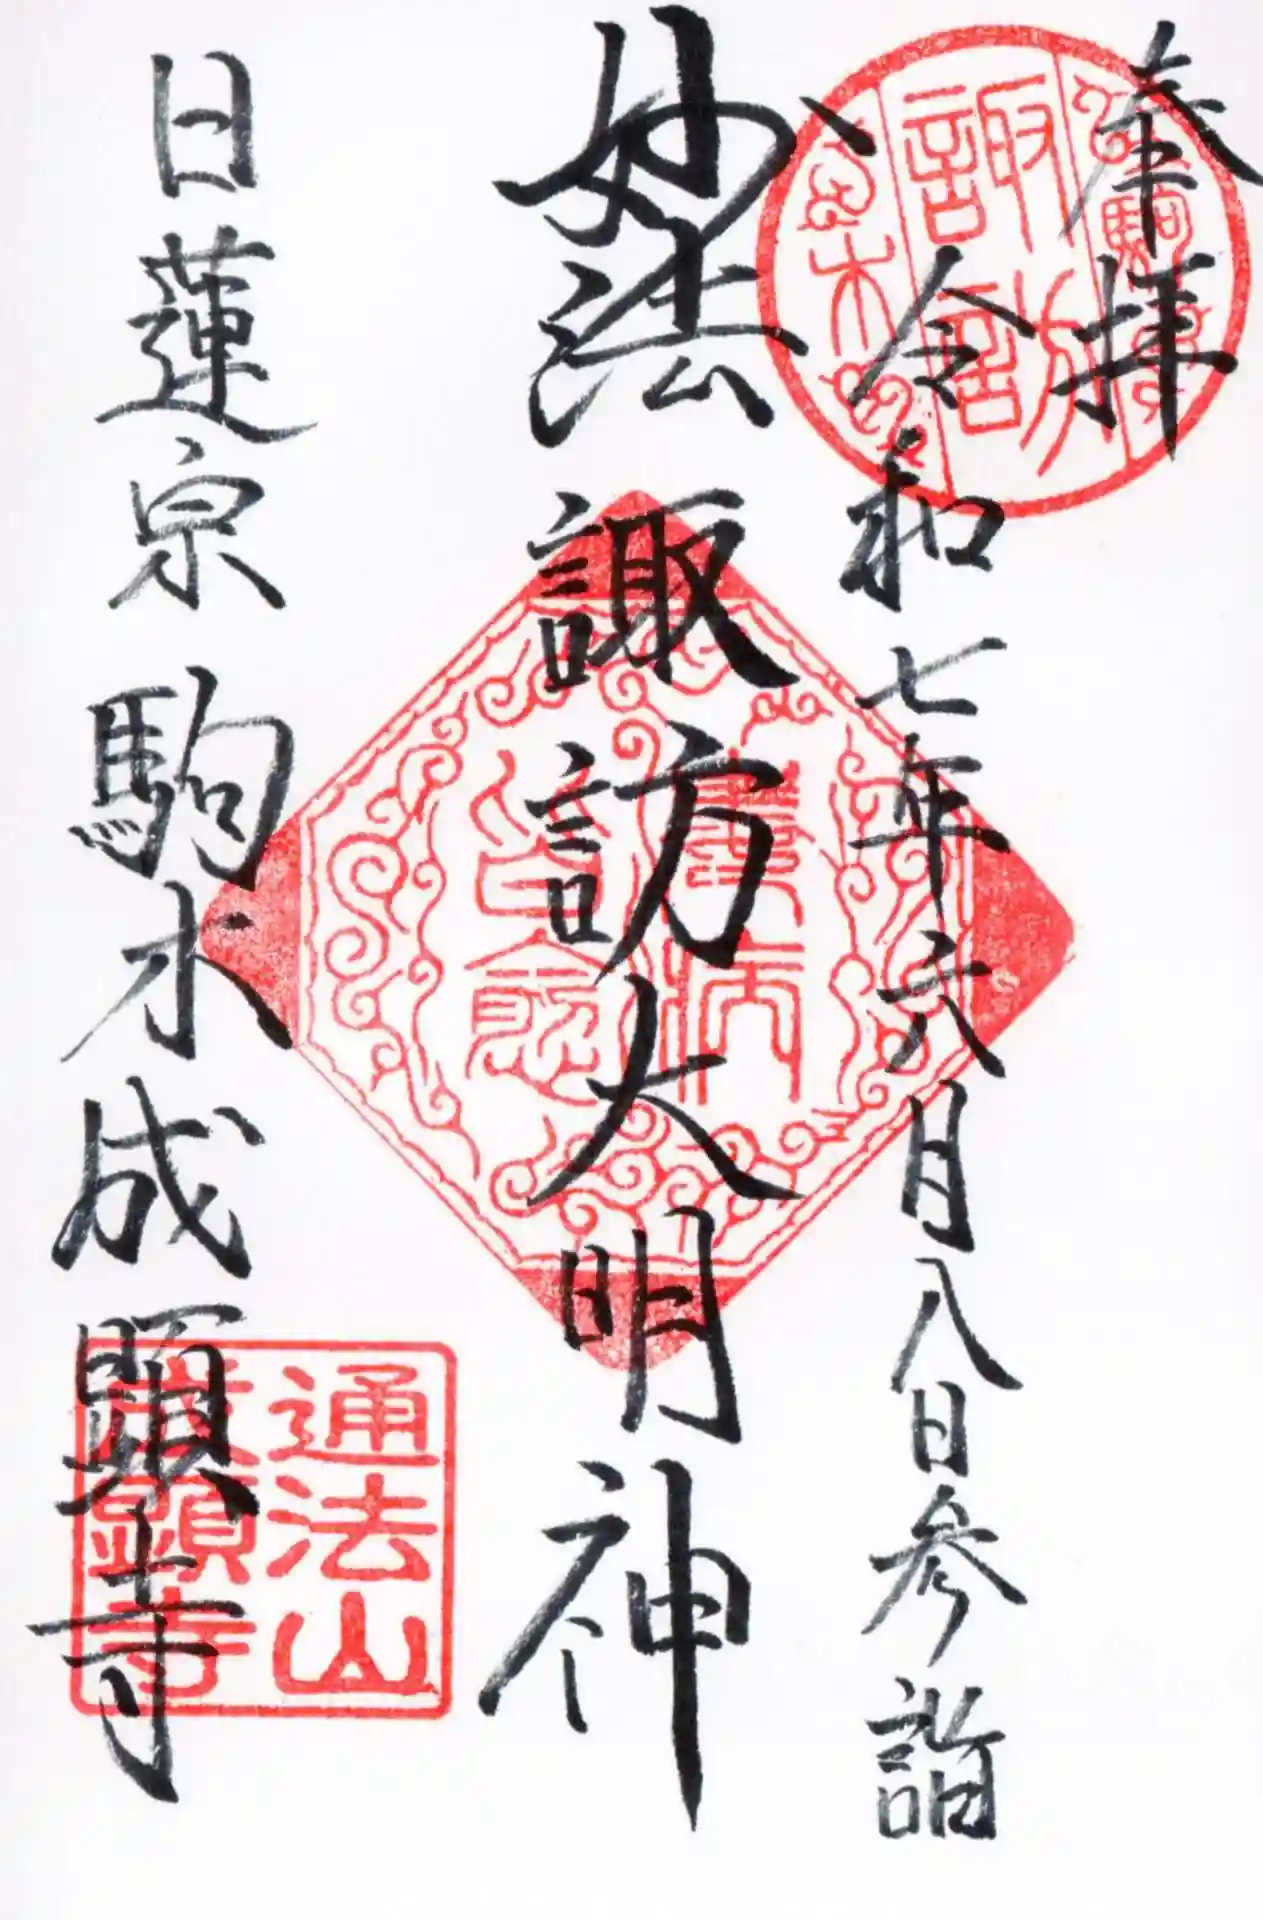 奉拝
令和七年六月八日参詣
妙法 諏訪大明神
日蓮宗 駒木成顕寺
駒
諏訪
木
病
皆愈
通法山
成顕寺